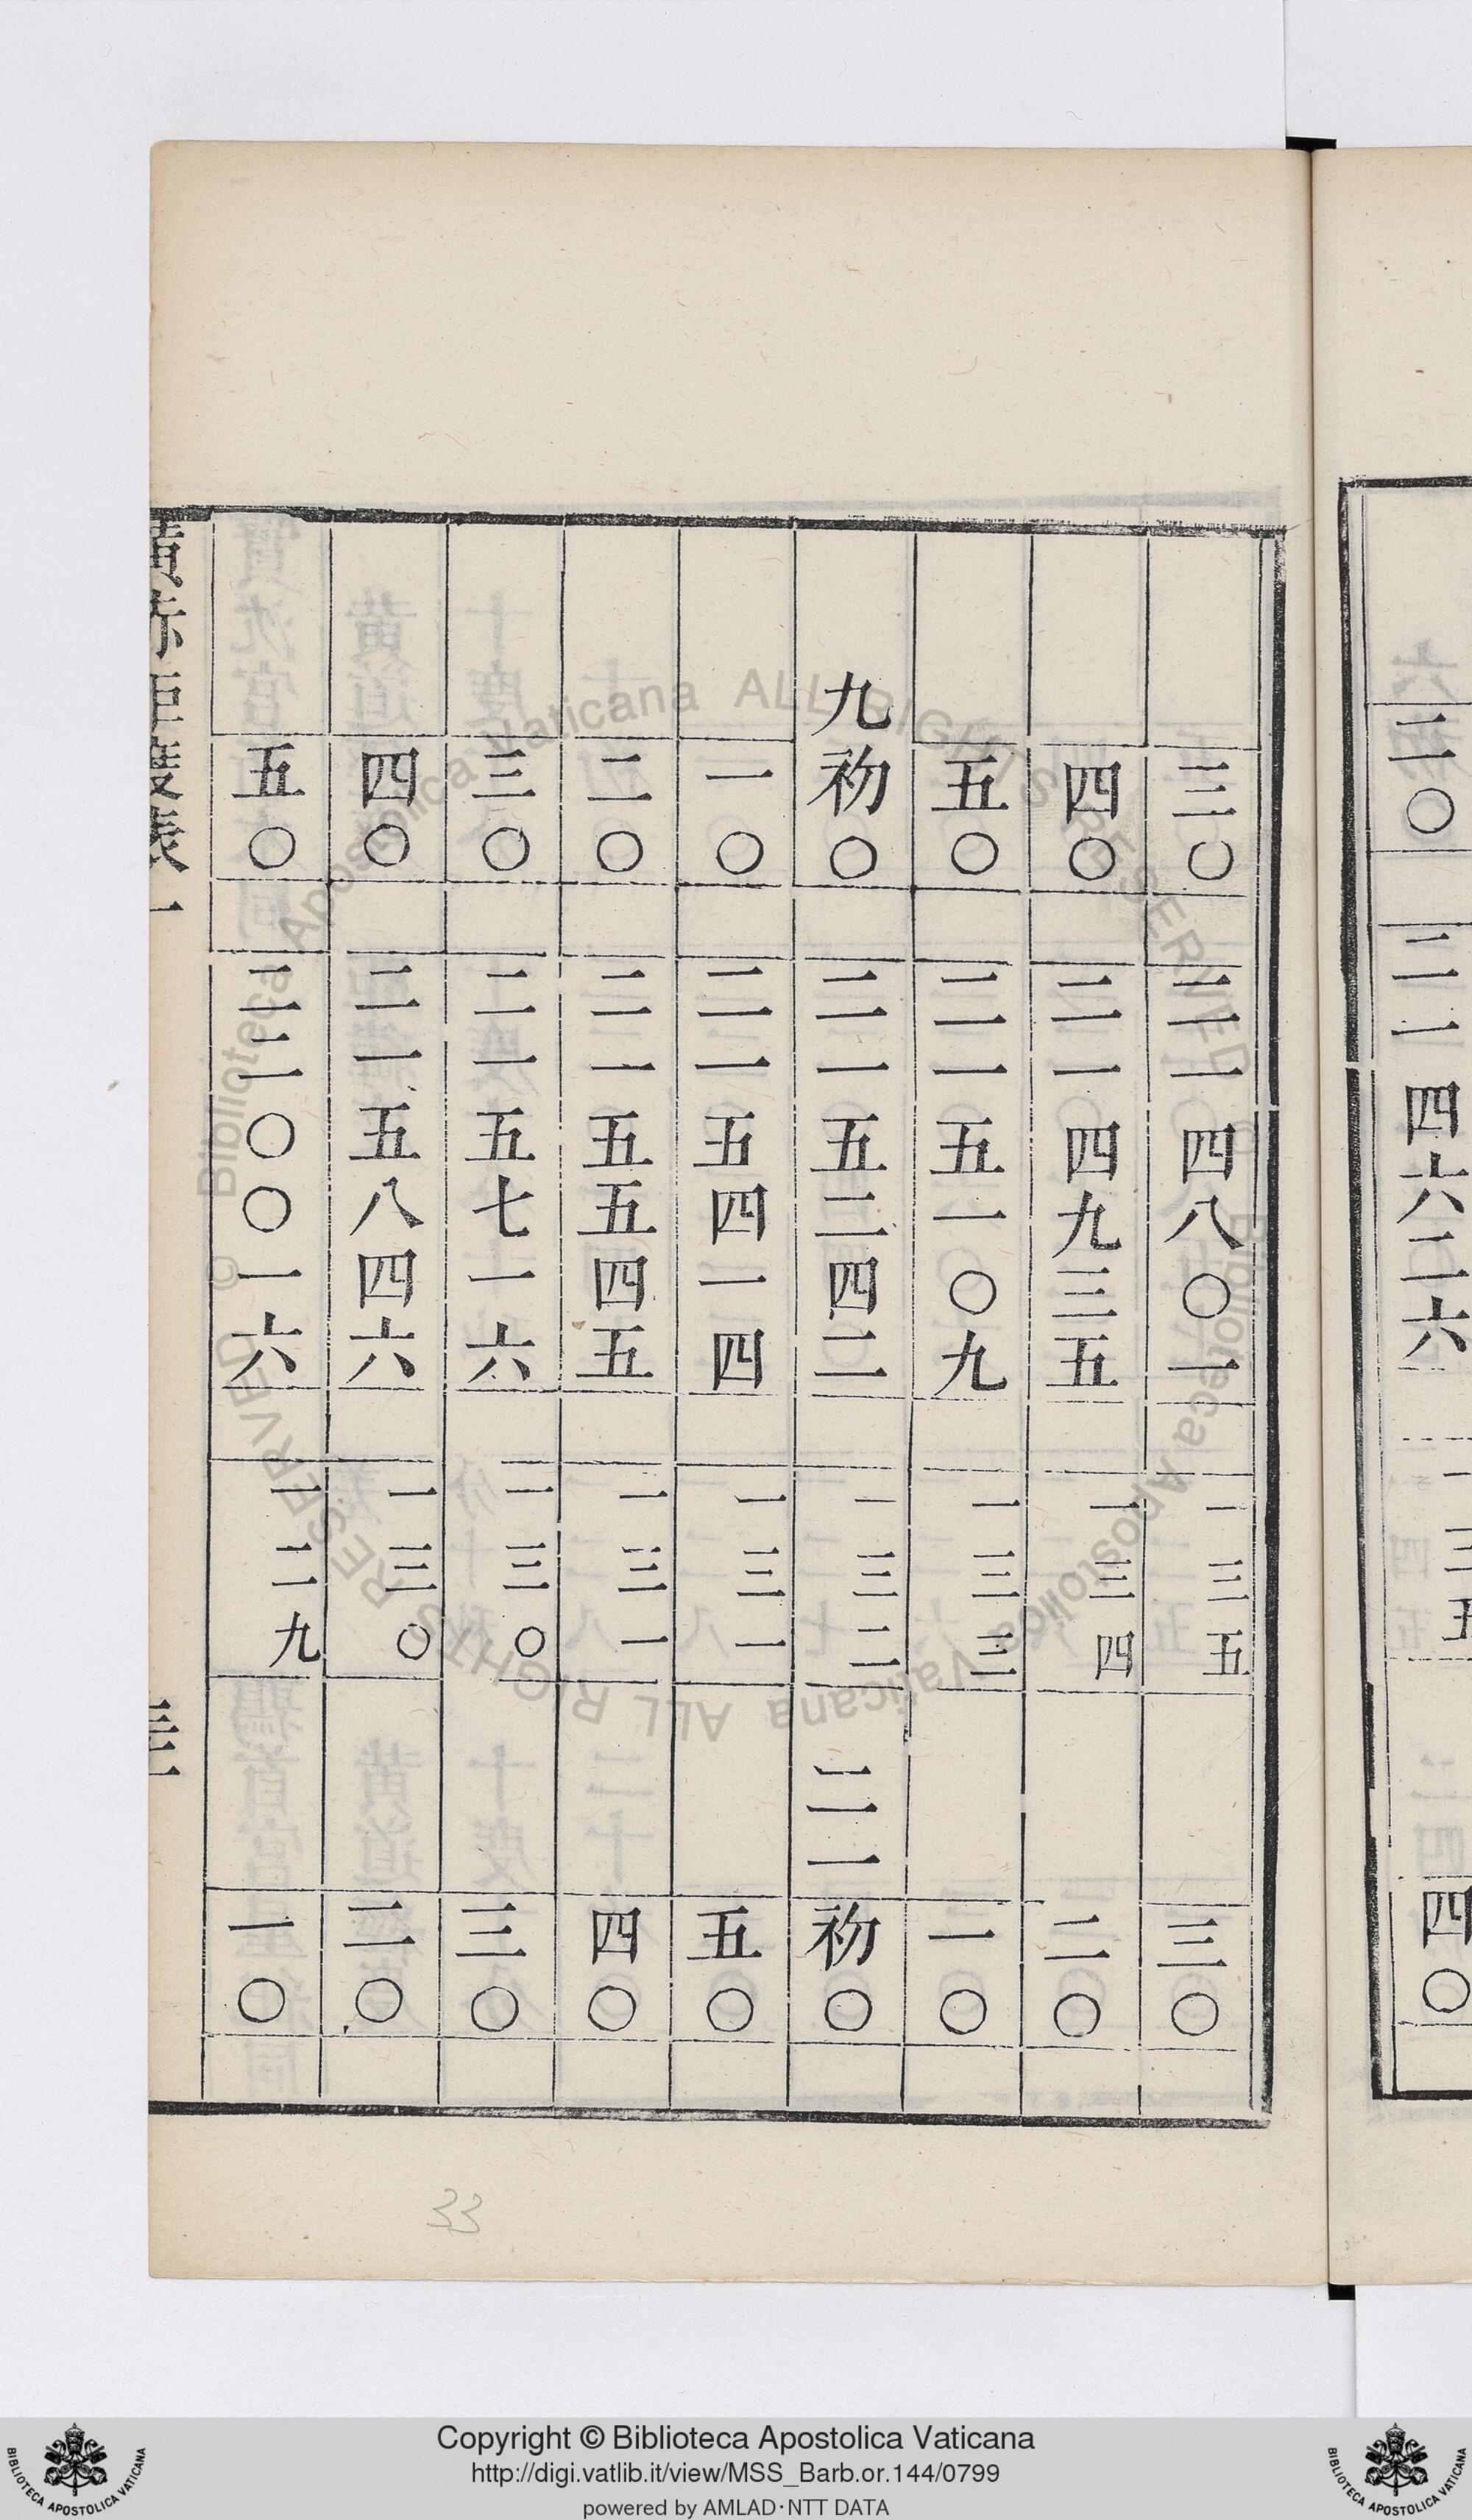 二〇 二一四六二六 一三五 四〇
三〇 二一四八〇一 一三五 三〇
四〇 二一四九三五 一三四 二〇
五〇 二一五一〇九 一三三 一〇
九初〇 二一五二四二 一三二 二一初〇
一〇 二一五四一四 一三一 五〇
二〇 二一五五四五 一三一 四〇
三〇 二一五七一六 一三〇 三〇
四〇 二一五八四六 一三〇 二〇
五〇 二二〇〇一六 一二九 一〇
黃赤距度表一
33
Copyright © Biblioteca Apostolica Vaticana
http://digi.vatlib.it/view/MSS_Barb.or.144/0799
powered by AMLAD·NTT DATA
BIBLIOTECA APOSTOLICA VATICANA
BIBLIOTECA APOSTOLICA VATICANA
© Biblioteca Apostolica Vaticana ALL RIGHTS RESERVED
© Biblioteca Apostolica Vaticana ALL RIGHTS RESERVED